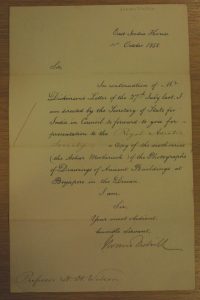 East India House
1st October 1858
Sir
In continuation of Mr
Dickinson's Letter of the 27th July last, I
am directed by the Secretary of State for
India in Council to forward to you for
presentation to the Royal Asiatic
Society a Copy of the work series
(the Ashar Moobaruk) of the Photographs
of Drawings of Ancient Buildings at
Beejapore in the Deccan.
I am
Sir,
Your most obedient
humble Servant
Professor H. H. Wilson